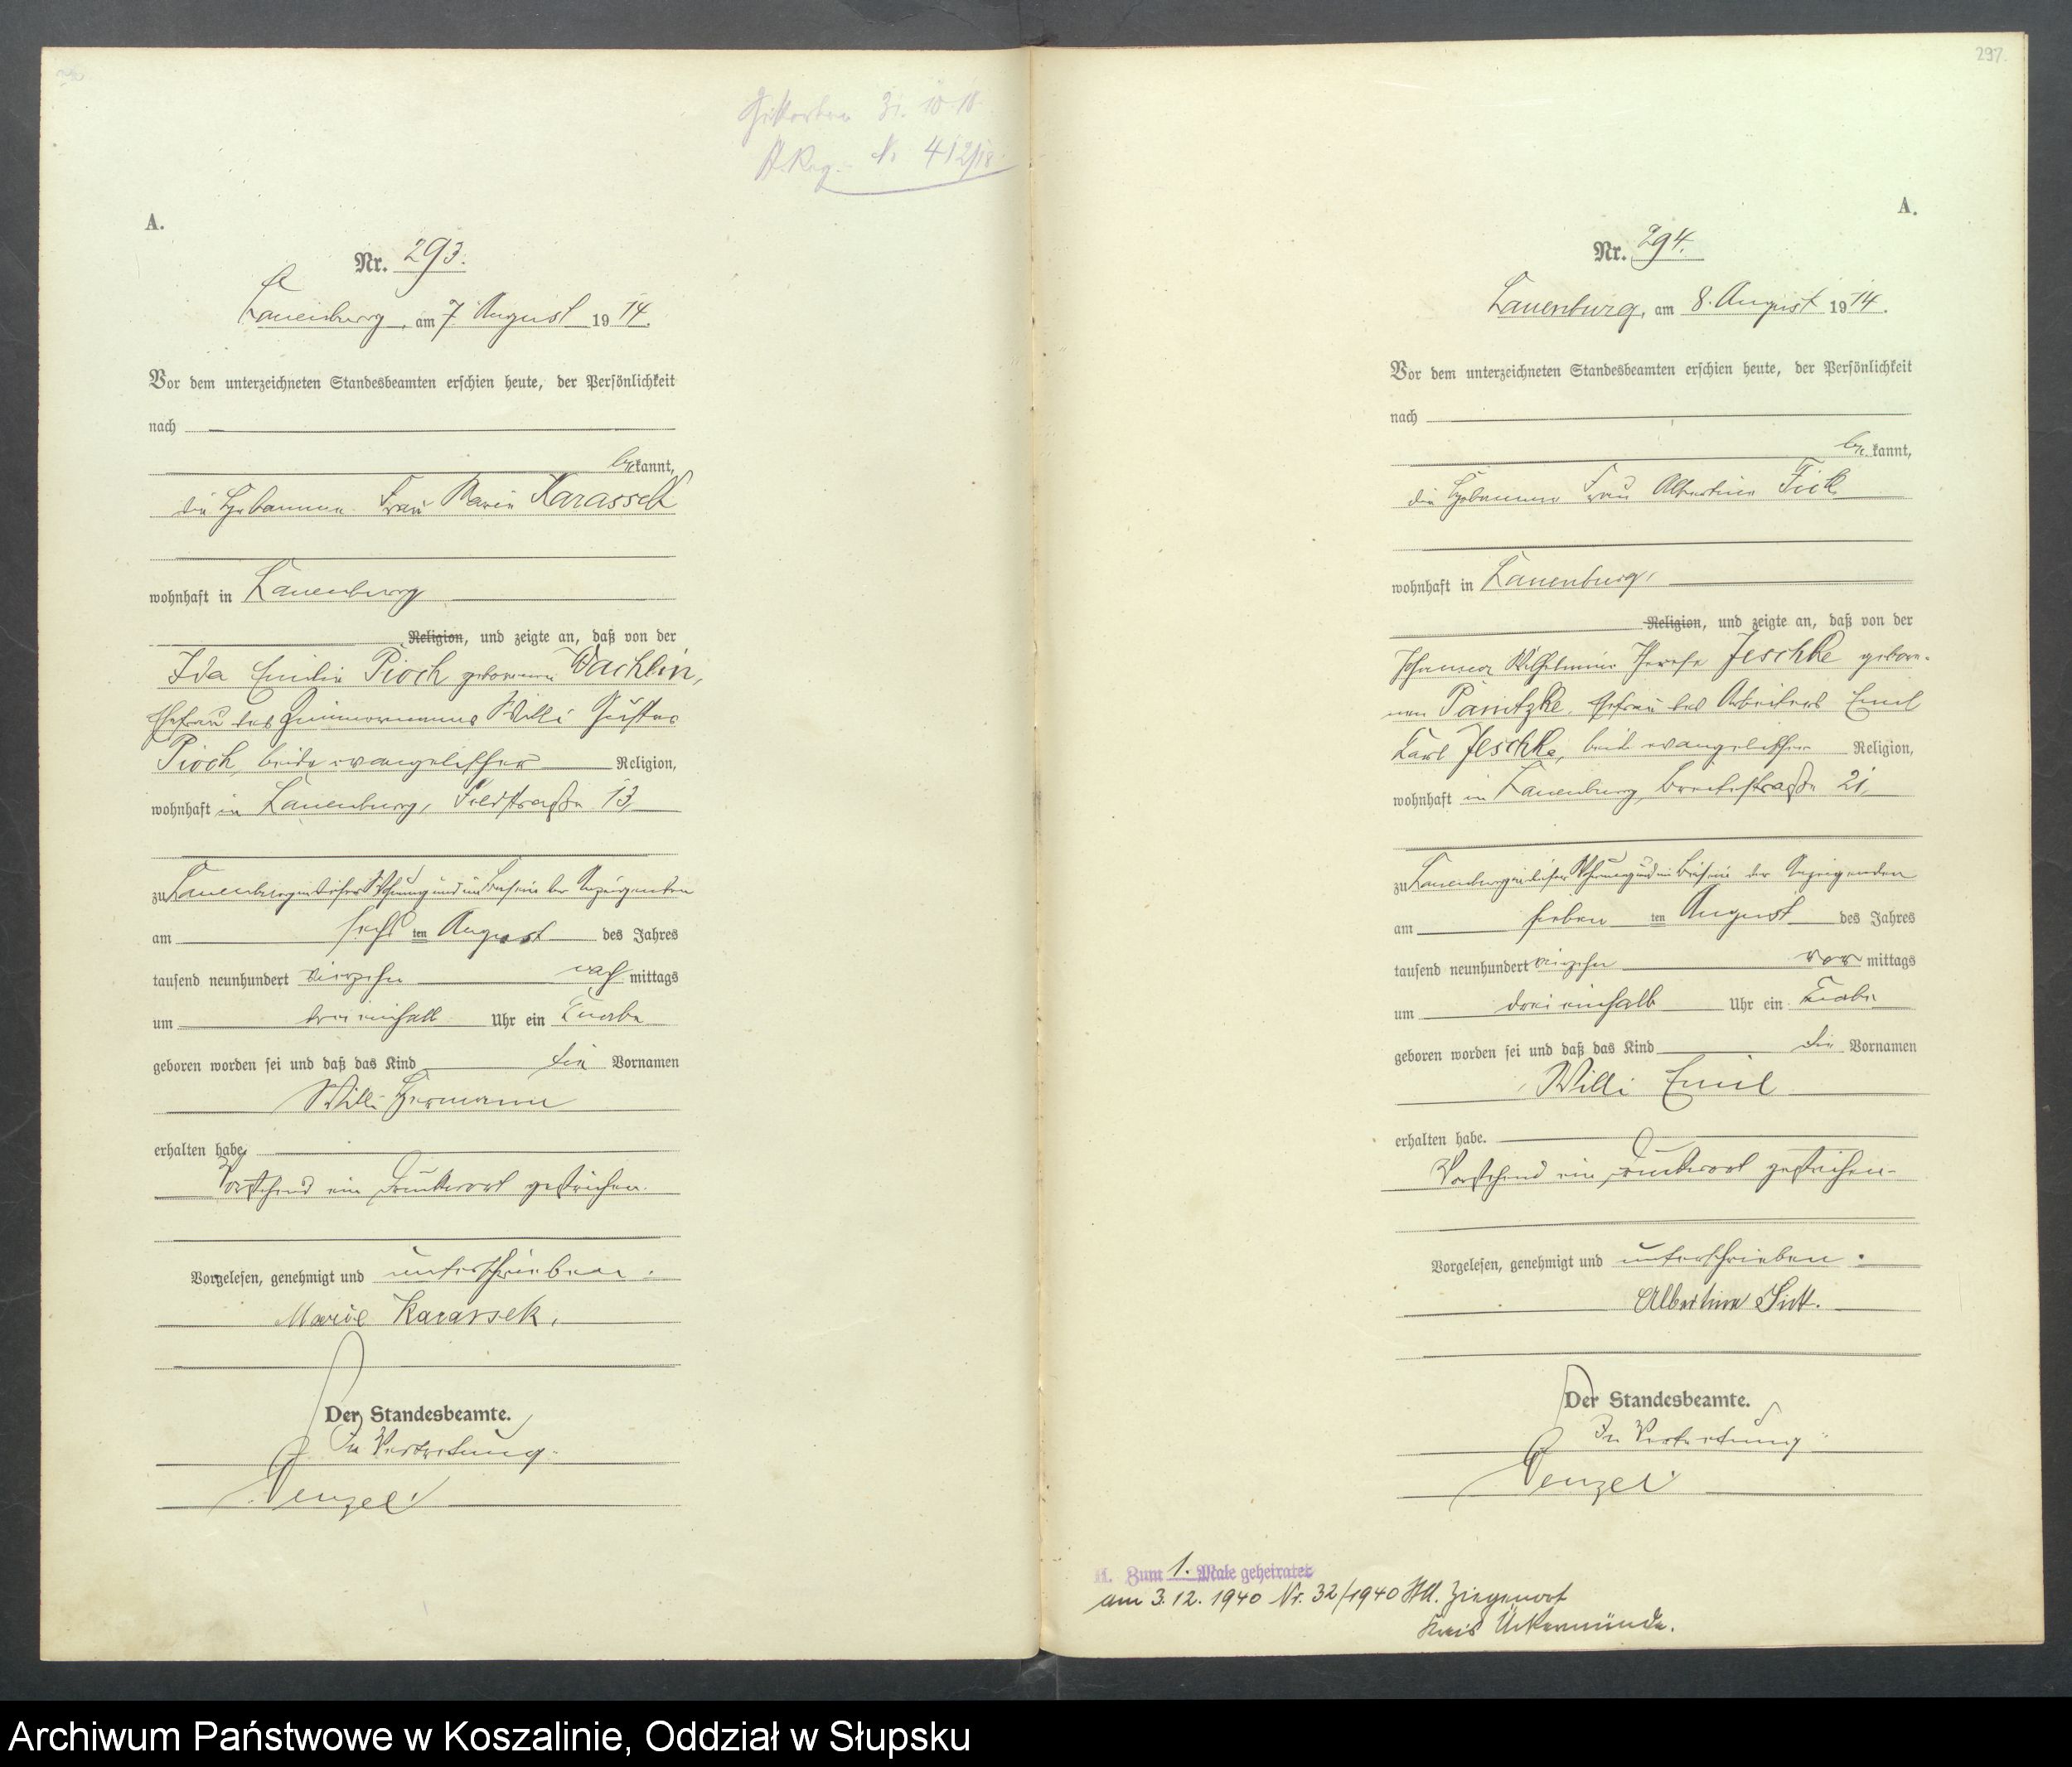 Gestorben 31. 10. 18.
St. Reg. Nr 412/18.
A.
Nr. 293.
Lauenburg, am 7. August 1914.
Vor dem unterzeichneten Standesbeamten erschien heute, der Persönlichkeit
nach
bekannt,
die Hebamme Frau Marie Karassek
wohnhaft in Lauenburg
Religion, und zeigte an, daß von der
Ida Emilie Pioch geborenen Wachlin,
Ehefrau des Zimmermanns Willi Gustav
Pioch, beide evangelischer Religion,
wohnhaft in Lauenburg, Feldstraße 13,
zu Lauenburg in dieser Wohnung und im Beisein der Anzeigenden
am sechsten August des Jahres
tausend neunhundert vierzehn nachmittags
um dreieinhalb Uhr ein Knabe
geboren worden sei und daß das Kind die Vornamen
Willi Hermann
erhalten habe.
Vorstehend ein Druckwort gestrichen.
Vorgelesen, genehmigt und unterschrieben.
Marie Karassek.
Der Standesbeamte.
In Vertretung.
Wenzel.
297.
A.
Nr. 294.
Lauenburg, am 8. August 1914.
Vor dem unterzeichneten Standesbeamten erschien heute, der Persönlichkeit
nach
bekannt,
die Hebamme Frau Albertine Fick
wohnhaft in Lauenburg,
Religion, und zeigte an, daß von der
Johanna Wilhelmine Therese Jeschke gebore-
nen Panitzke, Ehefrau des Arbeiters Emil
Karl Jeschke, beide evangelischer Religion,
wohnhaft in Lauenburg, Breitestraße 21,
zu Lauenburg in dieser Wohnung und im Beisein der Anzeigenden
am siebenten August des Jahres
tausend neunhundert vierzehn vormittags
um dreieinhalb Uhr ein Knabe
geboren worden sei und daß das Kind die Vornamen
Willi Emil
erhalten habe.
Vorstehend ein Druckwort gestrichen.
Vorgelesen, genehmigt und unterschrieben.
Albertine Fick.
Der Standesbeamte.
In Vertretung.
Wenzel.
Zum 1. Male geheiratet
am 3.12.1940 Nr. 32/1940 StA. Ziegenort
Kreis Ückermünde.
Archiwum Państwowe w Koszalinie, Oddział w Słupsku